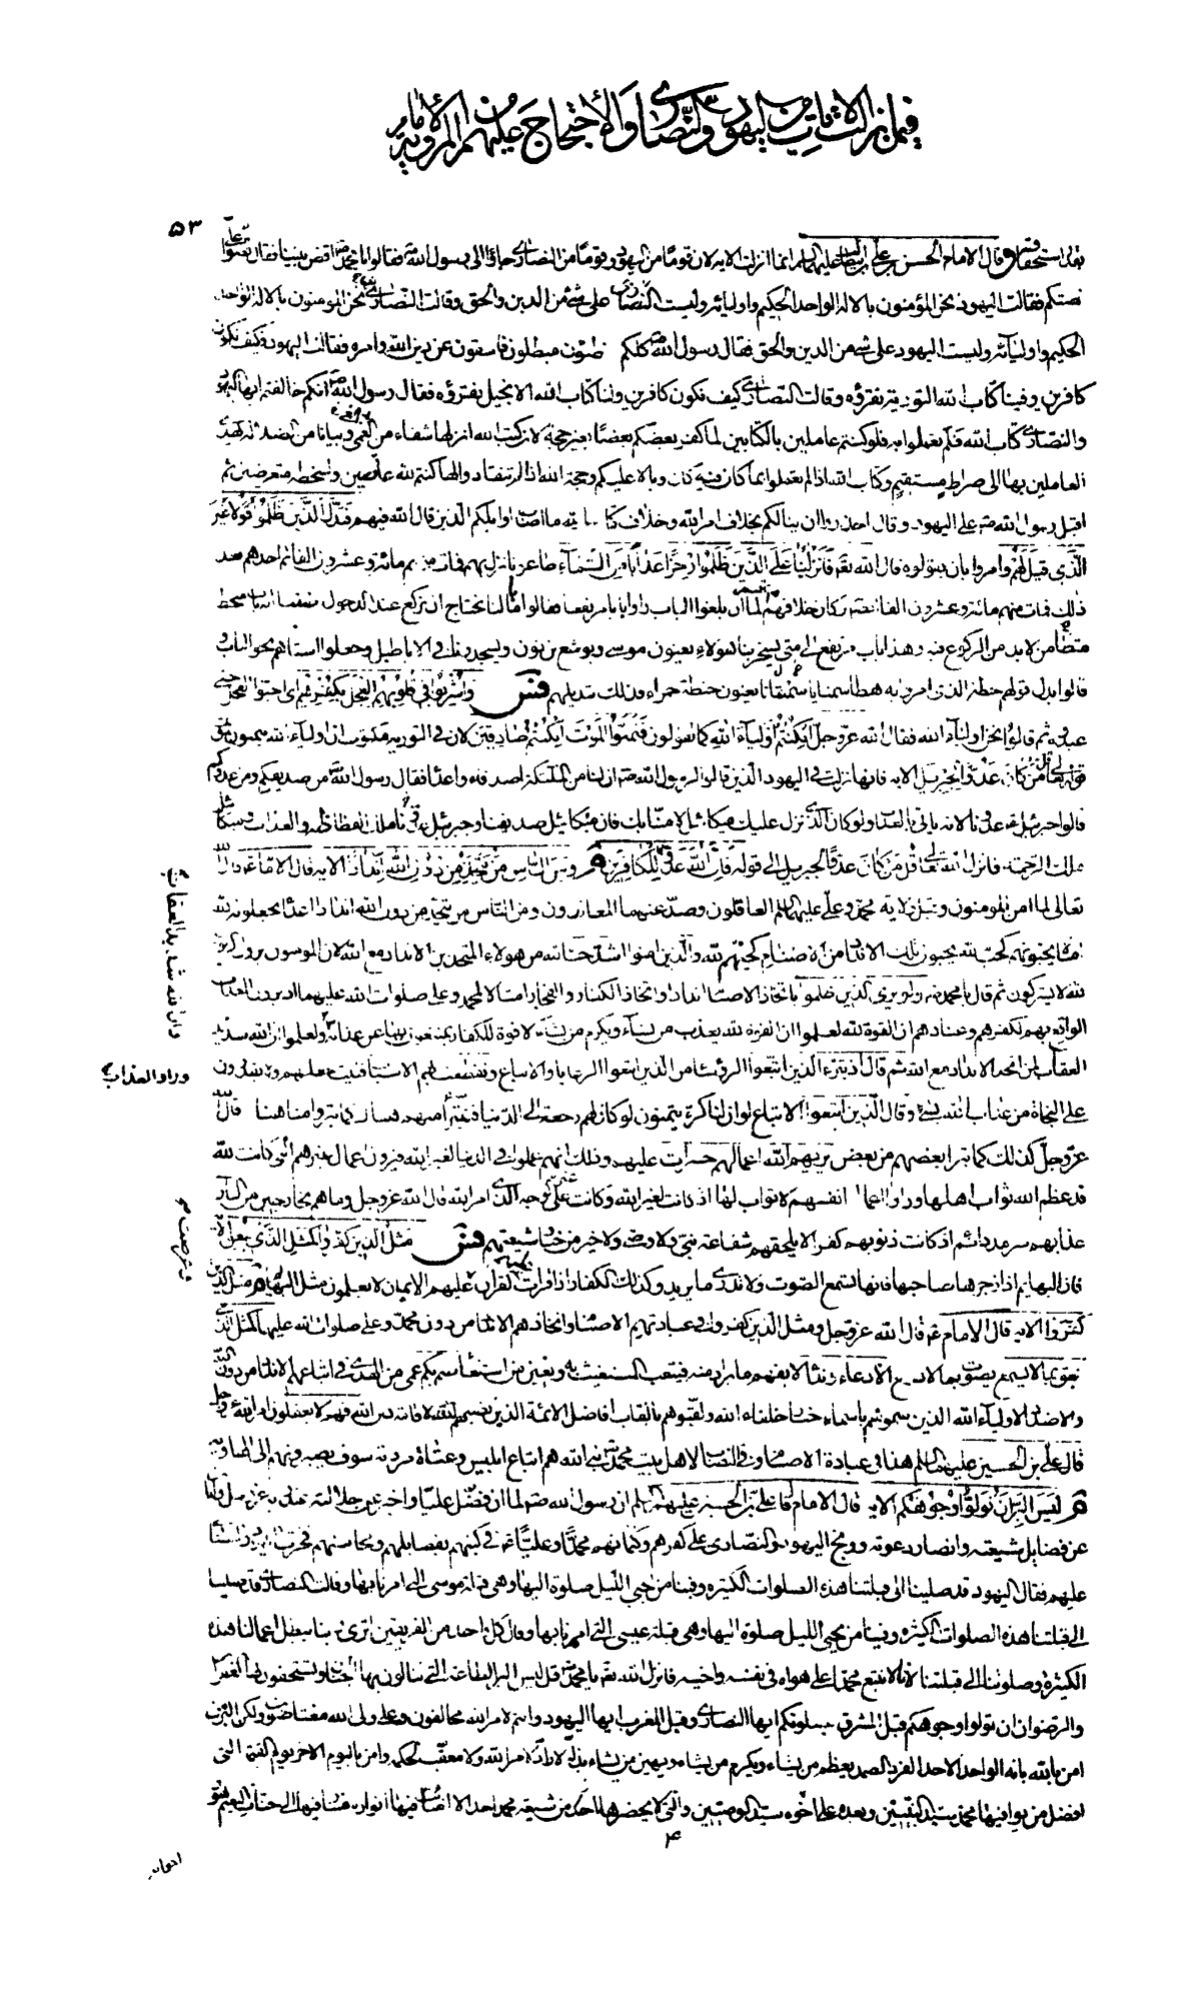 فيما نزل الآيات من اليهود والنصارى والاحتجاج عليهم من الأمام المروية
٥٣
تعالى استحقاق وقال الامام الحسن بن علي ابيطالب عليهما السلام انما انزلت الاية لان قومًا من اليهود وقومًا من النصارى جاؤا الى رسول الله فقالوا يا محمد اقض بيننا فقال
قصتكم فقالت اليهود نحن المؤمنون بالاله الواحد الحكيم واوليائه وليست النصارى على شئ من الدين والحق وقالت النصارى نحن المؤمنون بالاله الواحد
الحكيم واوليائه وليست اليهود على شئ من الدين والحق فقال رسول الله كلكم مبطلون فاسقون عن دين الله وامره فقالت اليهود وكيف نكون
كافرين وفينا كتاب الله التورية نقرؤه وقالت النصارى كيف نكون كافرين ولنا كتاب الله الانجيل نقرؤه فقال رسول الله انكم خالفتم ايها اليهود
والنصارى كتاب الله فلم تعملوا به فلو كنتم عاملين بالكتابين لما كفر بعضكم بعضًا بغير حجة لان كتب الله انزلها شفاء من العمى وبيانا من الضلالة تهدى
العاملين بها الى صراط مستقيم وكتاب الله اذا لم تعملوا بما كان فيه كان وبالا عليكم وحجة الله اذا لم تنقادوا لها كنتم لله عاصين ولسخطه متعرضين ثم
اقبل رسول الله على اليهود وقال احذروا ان ينالكم بخلاف امر الله وخلاف كتابه ما اصاب اوايلكم الذين قال الله فيهم فبدل الذين ظلموا قولا غير
الذى قيل لهم وامروا بان يقولوه قال الله تعالى فانزلنا على الذين ظلموا رجزا عذابا من السماء طاعونا نزل بهم فمات منهم مائة وعشرون الفا ثم اخذهم بعد
ذلك فمات منهم مائة وعشرون الفا وكان خلافهم لما ان بلغوا الباب راوا بابا مرتفعا فقالوا ما لنا نحتاج ان نركع عند الدخول
لابد من الركوع فيه وهذا باب مرتفع الى متى يسخر بنا هؤلاء يعنون موسى ويوشع بن نون ويسجدوننا فى الاباطيل وجعلوا استاههم نحو الباب و
قالوا بدل قولهم حطة الذى امروا به هطا سمقانا يعنون حنطة حمراء فذلك تبديلهم واشربوا فى قلوبهم العجل بكفرهم اى احبوا العجل حتى
عبدوه ثم قالوا نحن اولياء الله فقال الله عز وجل ان كنتم اولياء الله كما تقولون فتمنوا الموت ان كنتم صادقين لان فى التورية مكتوب ان اولياء الله يتمنون
من كان عدوا لجبريل الاية فانها نزلت فى اليهود الذين قالوا لرسول الله ان لنا من الملئكة اصدقاء واعداء فقال رسول الله من صديقكم ومن عدوكم
قالوا جبرئيل عدونا لانه ياتى بالعذاب ولو كان الذى نزل عليك ميكائيل لامنا بك فان ميكائيل صديقنا وجبرئيل ملك الفظاظة والعذاب وميكائيل
ملك الرحمة فانزل الله تعالى قل من كان عدوا لجبريل الى قوله فان الله عدو للكافرين ومن الناس من يتخذ من دون الله اندادا الاية قال الامام قال الله
تعالى لما امن المؤمنون وقبل ولاية محمد وعلى عليهما السلم العاقلون وصد عنهما المعاندون ومن الناس من يتخذ من دون الله اندادا اعداء يجعلونهم لله
امثالا يحبونهم كحب الله يحبون تلك الانداد من الاصنام كحبهم لله والذين امنوا اشد حبا لله من هولاء المتخذين الانداد مع الله لان المؤمنون يرون الربوبية
لله لا يشركون ثم قال يا محمد ولو يرى الذين ظلموا باتخاذ الاصنام اندادا واتخاذ الكفار والفجار امثالا لمحمد وعلى صلوات الله عليهما اذ يرون العذاب
الواقع بهم لكفرهم وعنادهم ان القوة لله لعلموا ان القوة لله يعذب من يشاء ويكرم من يشاء لا قوة للكفار يمتنعون بها عن عذابه ولعلموا ان الله شديد
العقاب لمن اتخذ الانداد مع الله ثم قال اذ تبرء الذين اتبعوا الرؤساء من الذين اتبعوا الرعايا والاتباع وتقطعت بهم الاسباب
على النجاة من عذاب الله بشئ وقال الذين اتبعوا الاتباع لو ان لنا كرة يتمنون لو كان لهم رجعة الى الدنيا فنتبرأ منهم هناك كما تبروا منا هنا قال الله
عز وجل كذلك كما تبرا بعضهم من بعض يريهم الله اعمالهم حسرات عليهم وذلك انهم عملوا فى الدنيا لغير الله فيرون اعمال غيرهم التى كانت لله
قد عظم الله ثواب اهلها وراوا اعمال انفسهم لا ثواب لها اذ كانت لغير الله وكانت على غير الوجه الذى امر الله قال الله عز وجل وما هم بخارجين من النار
عذابهم سرمد دائم اذ كانت ذنوبهم كفرا لا يلحقهم شفاعة نبى ولا وصى ولا خير من خيار شيعتهم مثل الذين كفروا كمثل الذى ينعق
فان البهايم اذا زجرها صاحبها فانها تسمع الصوت ولا تدرى ما يريد وكذلك الكفار اذا قرات القران عليهم الايمان لا يعلمون مثل البهايم ومثل الذين
كفروا الاية قال الامام قال الله عز وجل ومثل الذين كفروا فى عبادتهم الاصنام واتخاذهم الانداد من دون محمد وعلى صلوات الله عليهما كمثل الذى
ينعق بما لا يسمع يصوت بما لا يسمع الا دعاء ونداء لا يفهم ما يراد منه فيتعب المستغيث به ويغيث من استغاثه صم بكم عمى من الهدى فى اتباعهم الانداد من دون الله
والاضداد لاولياء الله الذين سموهم باسماء خيار خلفاء الله ولقبوهم بالقاب افاضل الائمة الذين نصبهم الله لاقامة دين الله فهم لا يعقلون امر الله عز وجل
قال على بن الحسين عليهما السلم هذا فى عبادة الاصنام وفى النصاب لاهل بيت محمد نبى الله هم اتباع ابليس وعتاة مردته سوف يصيرونهم الى الهاوية
ليس البر ان تولوا وجوهكم الاية قال الامام قال على بن الحسين عليهما السلم ان رسول الله لما ان فضل عليا واخبر عن جلالته عند ربه عز وجل وابان
عن فضايل شيعته وانصار دعوته ووبخ اليهود والنصارى على كفرهم وكتمانهم محمدا وعليا فى كتبهم بفضايلهم ومحاسنهم فخرت اليهود والنصارى
عليهم فقال اليهود قد صلينا الى قبلتنا هذه الصلوات الكثيرة وفينا من يحيى الليل صلوة اليها وهى قبلة موسى التى امرنا بها وقالت النصارى قد صلينا
الى قبلتنا هذه الصلوات الكثيرة وفينا من يحيى الليل صلوة اليها وهى قبلة عيسى التى امرنا بها وقال كل واحد من الفريقين اترى ربنا يبطل اعمالنا هذه
الكثيرة وصلوتنا الى قبلتنا لانا لا نتبع محمدا على هواه فى نفسه واخيه فانزل الله تعالى يا محمد قل ليس البر الطاعة التى تنالون بها الجنان وتستحقون بها الغفران
والرضوان ان تولوا وجوهكم قبل المشرق بصلوتكم ايها النصارى وقبل المغرب ايها اليهود وانتم لامر الله مخالفون وعلى ولى الله مغتاظون ولكن البر من
امن بالله بانه الواحد الاحد الفرد الصمد يعظم من يشاء ويكرم من يشاء ويهين من يشاء ويذله لا راد لامر الله ولا معقب لحكمه وامن باليوم الاخر يوم القيمة التى
افضل من يوافيها محمد سيد النبيين وبعده على اخوه سيد الوصيين والتى لا يحضرها احد من شيعة محمد احد الا اضائت فيها انواره فسار فيها الى جنات النعيم هو
وان الله شديد العقاب
وراوا العذاب
٤